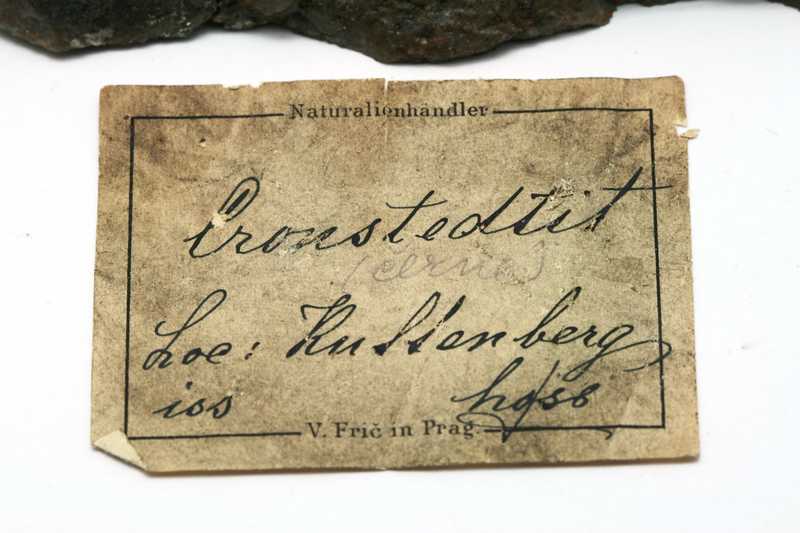 Naturalienhändler
Cronstedtit
(černa)
Loc: Kuttenberg,
iss
V. Frič in Prag.